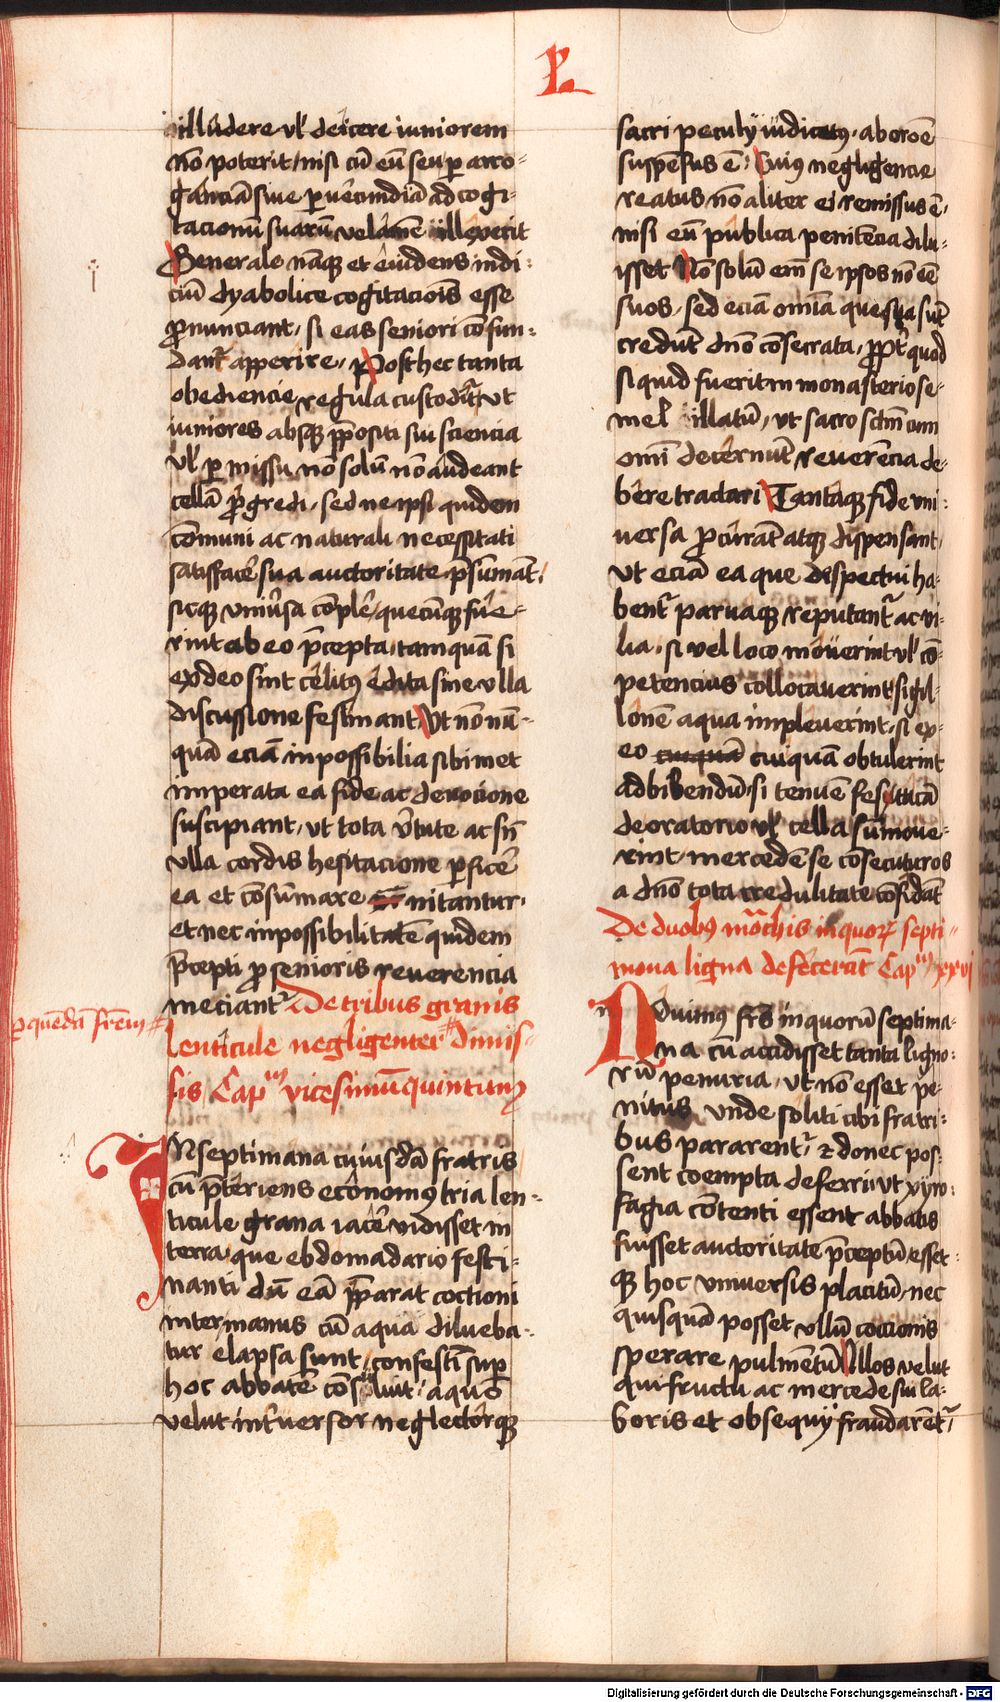 L
illudere vl̕ deicere iuniorem
nō poterit / nisi cū eū seu ꝑ arro⸗
ganciā siue ꝑ verecundiā ad cogi⸗
tacionū suarū velamē illexerit
Generale nāqꝫ et euidens indi⸗
ciū dyabolice cogitacōis esse
ꝓnunciant / si eas seniori cōfun⸗
dant᷑ apperire / Post hec tanta
obediencie regula custodit᷑ vt
iuniores absqꝫ p̄positi sui sciencia
vl̕ ꝑmissu nō solū nō audeant
cellā ꝓgredi / sed ne ipsi quidem
cōmuni ac naturali necessitati
satisfac̄e sua auctoritate p̄sumāt /
sicqꝫ vniūsa cōple᷑ / quecūqꝫ fue⸗
rint ab eo p̄cepta / tamquam si
ex deo sint celitꝰ edita sine vlla
discussione festinant Vt nō nū⸗
quā eciā inpossibilia sibimet
imperata ea fide ac deuocione
suscipiant / vt tota v̄tute ac sn̄
vlla cordis hesitacione ꝑfic̄e
ea et cōsummare nitantur /
et nec inpossibilitatē quidem
p̄cepti ꝓ senioris reuerencia
meciant᷑ De tribus granis
lenticule negligenter # dimis⸗
ꝑ quēdā frēm #
sis Capᵐ vicesimūquintum
IN septimana cuiusdā fratris
cū p̄teriens economꝰ tria len⸗
ticule grana iac̄e vidisset in
terra / que ebdomadario festi⸗
nanti dū eā p̄parat coctioni
inter manus cū aqua dilueba⸗
tur elapsa sunt / confestī suꝑ
hoc abbatē cōsuluit / a quo
velut int̄uersor neglectorqꝫ
sacri peculÿ iudicatꝰ / ab oroē
suspēsus ē / Cuiꝰ negligencie
reatus nō aliter ei remissus ē /
nisi eū publica penitēcia dilu⸗
isset Nō solū em̄ se ipsos nō eē
suos / sed eciā omīa que sua sūt
credūt dn̄o cōsecrata / ꝓpt̄ quod
si quid fuerit in monasterio se⸗
mel illatū / vt sacro sctm̄ cum
omī decernūt reuerēcia de⸗
bere tractari Tantaqꝫ fide vni⸗
uersa ꝓcurāt atqꝫ dispensant /
vt eciā ea que despectui ha⸗
bent᷑ paruaqꝫ reputant᷑ ac vi⸗
lia / si vel loco mouerint vl̕ cō⸗
petencius collocauerint / si gil⸗
lonē aqua impleuerint / si ex
eo cuiquā obtulerint
ad bibendū / si tenuē festucā
de oratorio vl̕ cella sūmoue⸗
rint / mercedē se cōsecuturos
a dn̄o tota credulitate cōfidāt
De duobꝰ mōchis in quoꝝ septi⸗
mana ligna defecerāt Capᵐ xxvi
NOuimꝰ frēs in quorū septima⸗
na cū accidisset tanta ligno⸗
rū penuria / vt nō esset pe⸗
nitus vnde soliti cibi fratri⸗
bus pararent᷑ / ⁊ donec pos⸗
sent coempta deferri / vt xyro⸗
fagia cōtenti essent abbatis
fuisset auctoritate p̄ceptū / esset⸗
qꝫ hoc vniuersis placitū / nec
quisquā posset vllū coccionis
sperare pulmētū Illos velut
qui fructu ac mercede sui la⸗
boris et obsequÿ fraudarent᷑
Digitalisierung gefördert durch die Deutsche Forschungsgemeinschaft - DFG